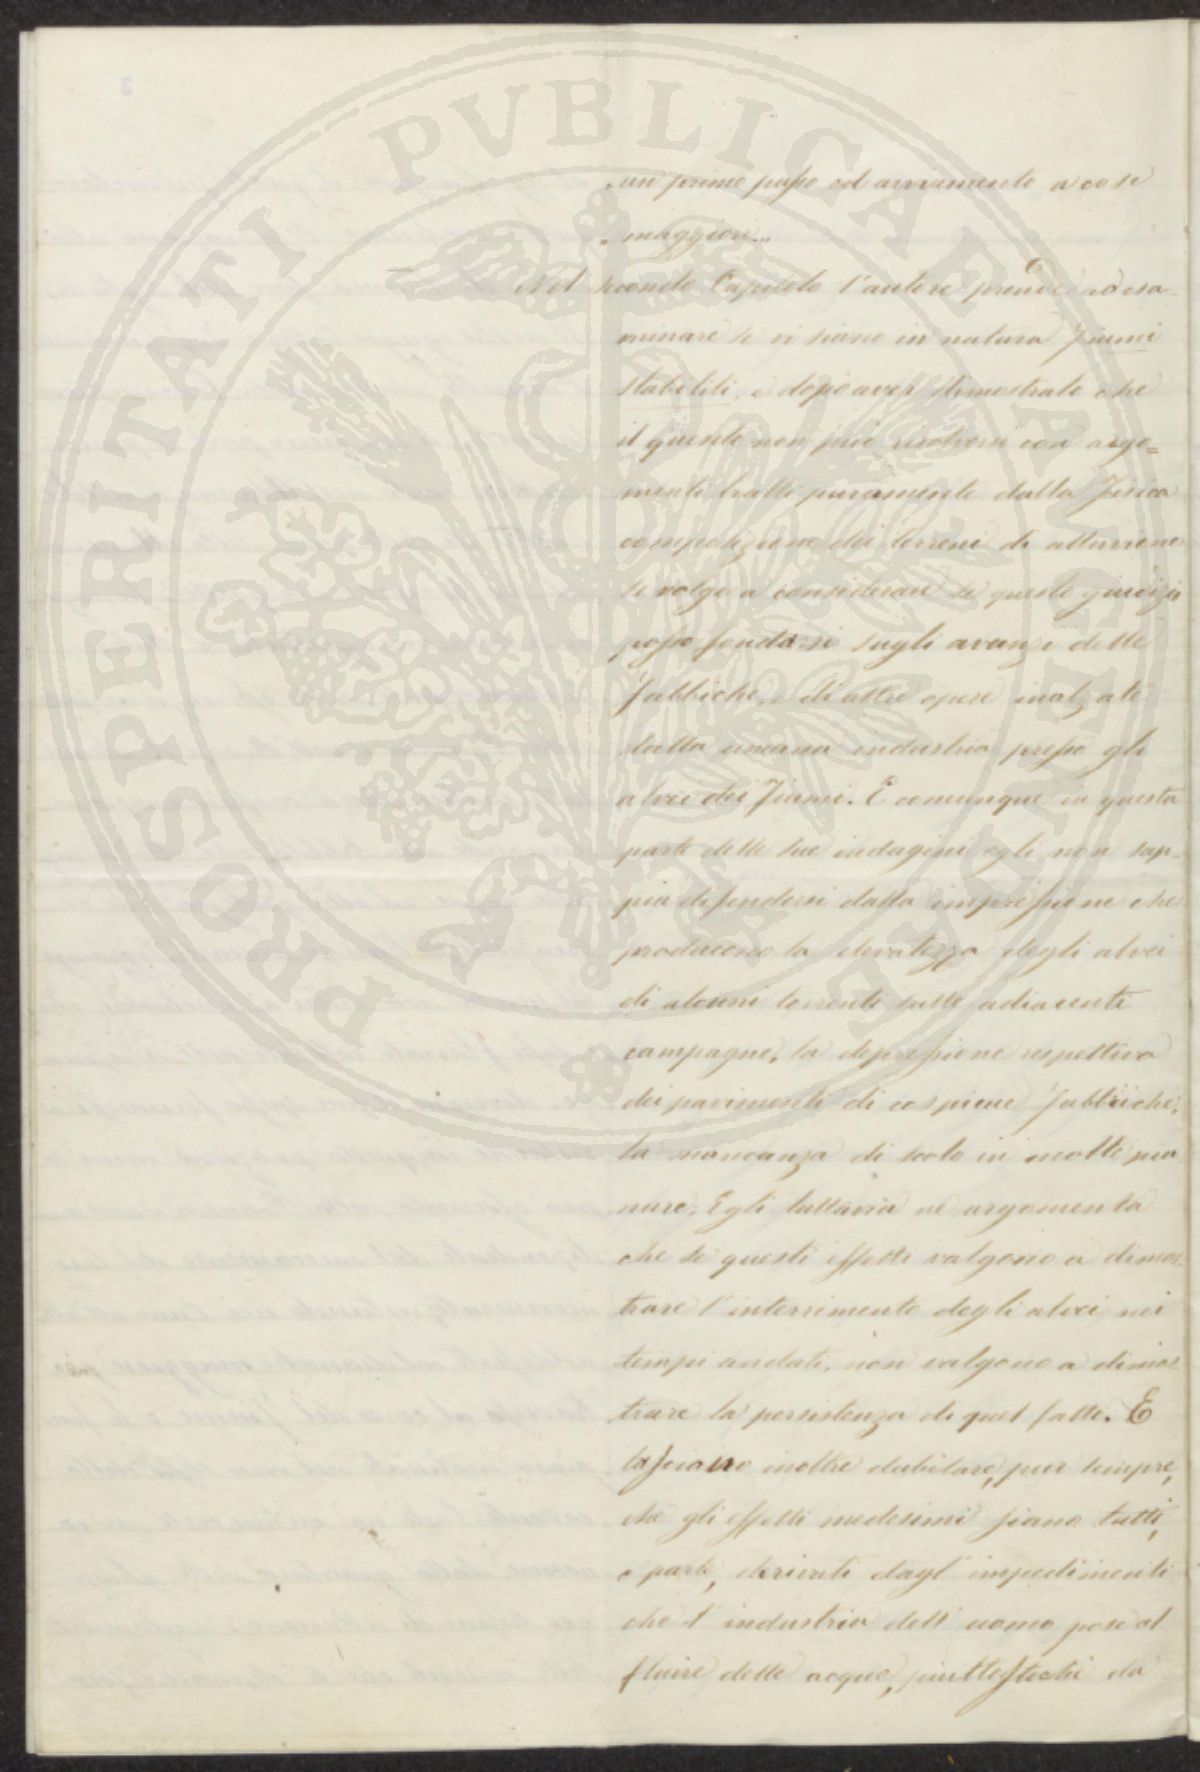 PROSPERITATI PUBLICAE AUGENDAE
„ un primo passo ed avviamento a cose
„ maggiori...
Nel secondo Capitolo l'autore prende ad esa-
minare se vi siano in natura fiumi
stabiliti, e dopo aver dimostrato che
il quesito non può risolversi con argo=
menti tratti puramente dalla fisica
composizione dei terreni di alluvione
si volge a considerare se questo giudizio
possa fondarsi sugli avanzi delle
fabbriche, e di altre opere inalzate
dalla umana industria presso gli
alvei dei fiumi. E comunque in questa
parte delle sue indagini egli non sap-
pia difendersi dalla impressione che
producono la elevatezza degli alvei
di alcuni torrenti sulle adiacenti
campagne, la depressione respettiva
dei pavimenti di cospicue fabbriche,
la mancanza di scolo in molte pia-
nure; Egli tuttavia ne argomenta
che se questi effetti valgono a dimos-
trare l'interrimento degli alvei nei
tempi andati, non valgono a dimos-
trare la persistenza di quel fatto. E
lasciano inoltre dubitare, pur sempre,
che gli effetti medesimi siano tutti,
o parte, derivati dagl'impedimenti
che l'industria dell'uomo pose al
fluire delle acque, piuttostochè da